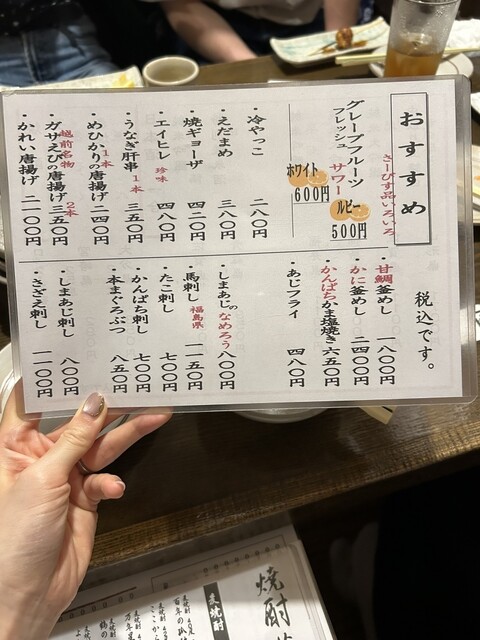 おすすめ
さーびす品いろいろ
グレープフルーツ
フレッシュ
サワー
ホワイト
600円
ルビー
500円
・冷やっこ 二八〇円
・えだまめ 三八〇円
・焼ギョーザ 四二〇円
・エイヒレ 珍味 四八〇円
・うなぎ肝串 1本 三五〇円
・めひかりの唐揚げ 1本 二四〇円
・ガサえびの唐揚げ 越前名物 2本 三五〇円
・かれい唐揚げ 二一〇〇円
税込です。
・甘鯛釜めし 一八〇〇円
・かに釜めし 二四〇〇円
・かんぱちかま塩焼き 六五〇円
・あじフライ 四八〇円
・しまあじのなめろう 八〇〇円
・馬刺し 福島県 一一五〇円
・たこ刺し 七〇〇円
・かんぱち刺し 七〇〇円
・本まぐろぶつ 八五〇円
・しまあじ刺し 八〇〇円
・さざえ刺し 一一〇〇円
焼酎
麦焼酎